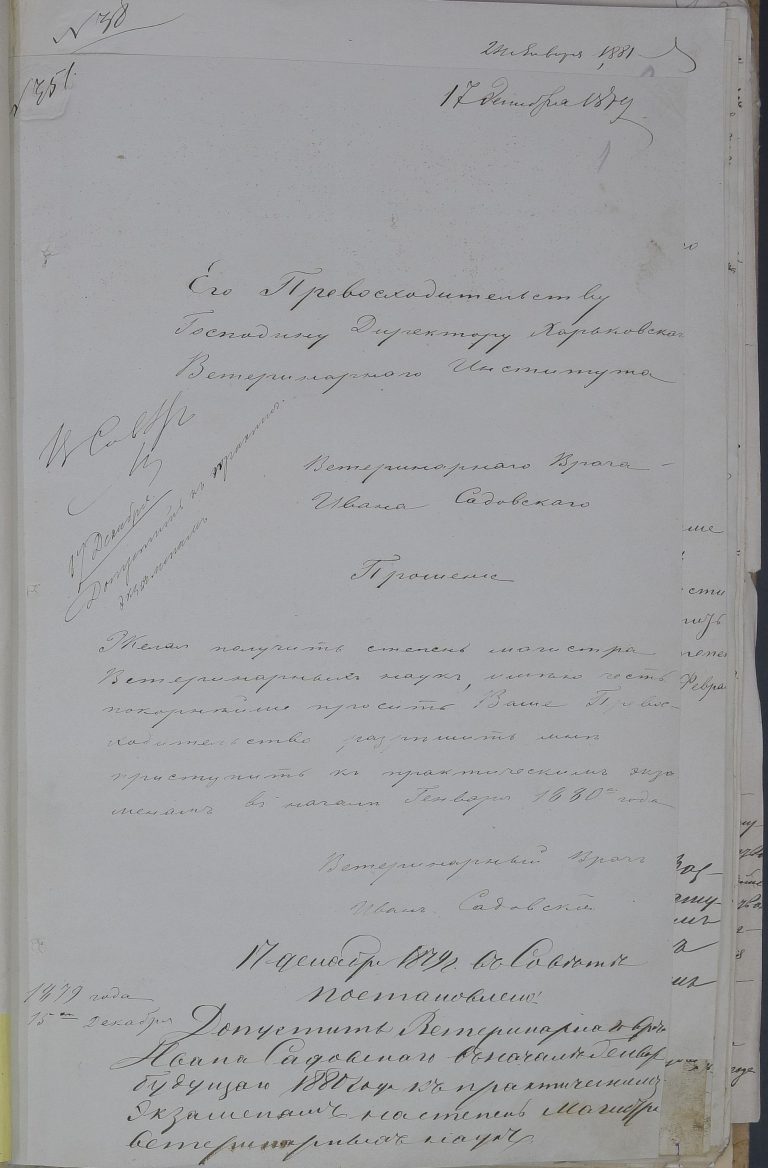 N 38
24 Января 1881
N 351.
17 Декабря 1879
Его Превосходительству
Господину Директору Харьковскаг
Ветеринарнаго Института
Въ Совѣтъ
17 Декабря
Допустить къ практич.
экзаменамъ
Ветеринарнаго Врача
Ивана Садовскаго
Прошенie
Желая получить степень магистра
Ветеринарныхъ наукъ, имѣю честь
покорнѣйше просить Ваше Превос-
ходительство разрѣшить мнѣ
приступить къ практическимъ экза
менамъ въ началѣ Генваря 1880го года
Ветеринарный Врачъ
Иванъ Садовскій
17 декабря 1879 г. въ Совѣтѣ
постановлено:
1879 года
15го Декабря
Допустить Ветеринарнаго Врача
Ивана Садовскаго въ началѣ Генвар
будущаго 1880 году къ практическимъ
экзаменамъ на степень Магистра
ветеринарныхъ наукъ